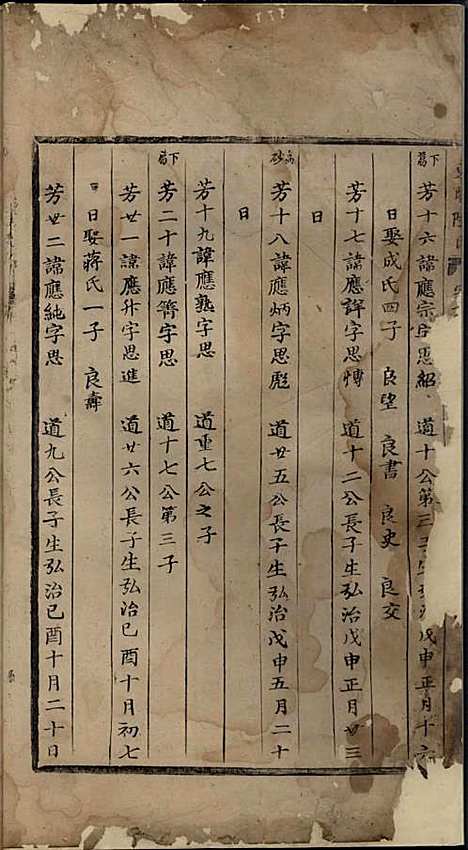 下舊
芳十六諱應宗字思紹 道十公第三子生弘治戊申正月十六
日娶成氏四子 良望 良書 良史 良交
芳十七諱應詳字思博 道十二公長子生弘治戊申正月廿三
日
高砂
芳十八諱應炳字思彪 道廿五公長子生弘治戊申五月二十
日
芳十九諱應熟字思 道重七公之子
下舊
芳二十諱應簪字思 道十七公第三子
芳廿一諱應升字思進 道廿六公長子生弘治己酉十月初七
日娶蔣氏一子 良壽
芳廿二諱應純字思 道九公長子生弘治己酉十月二十日